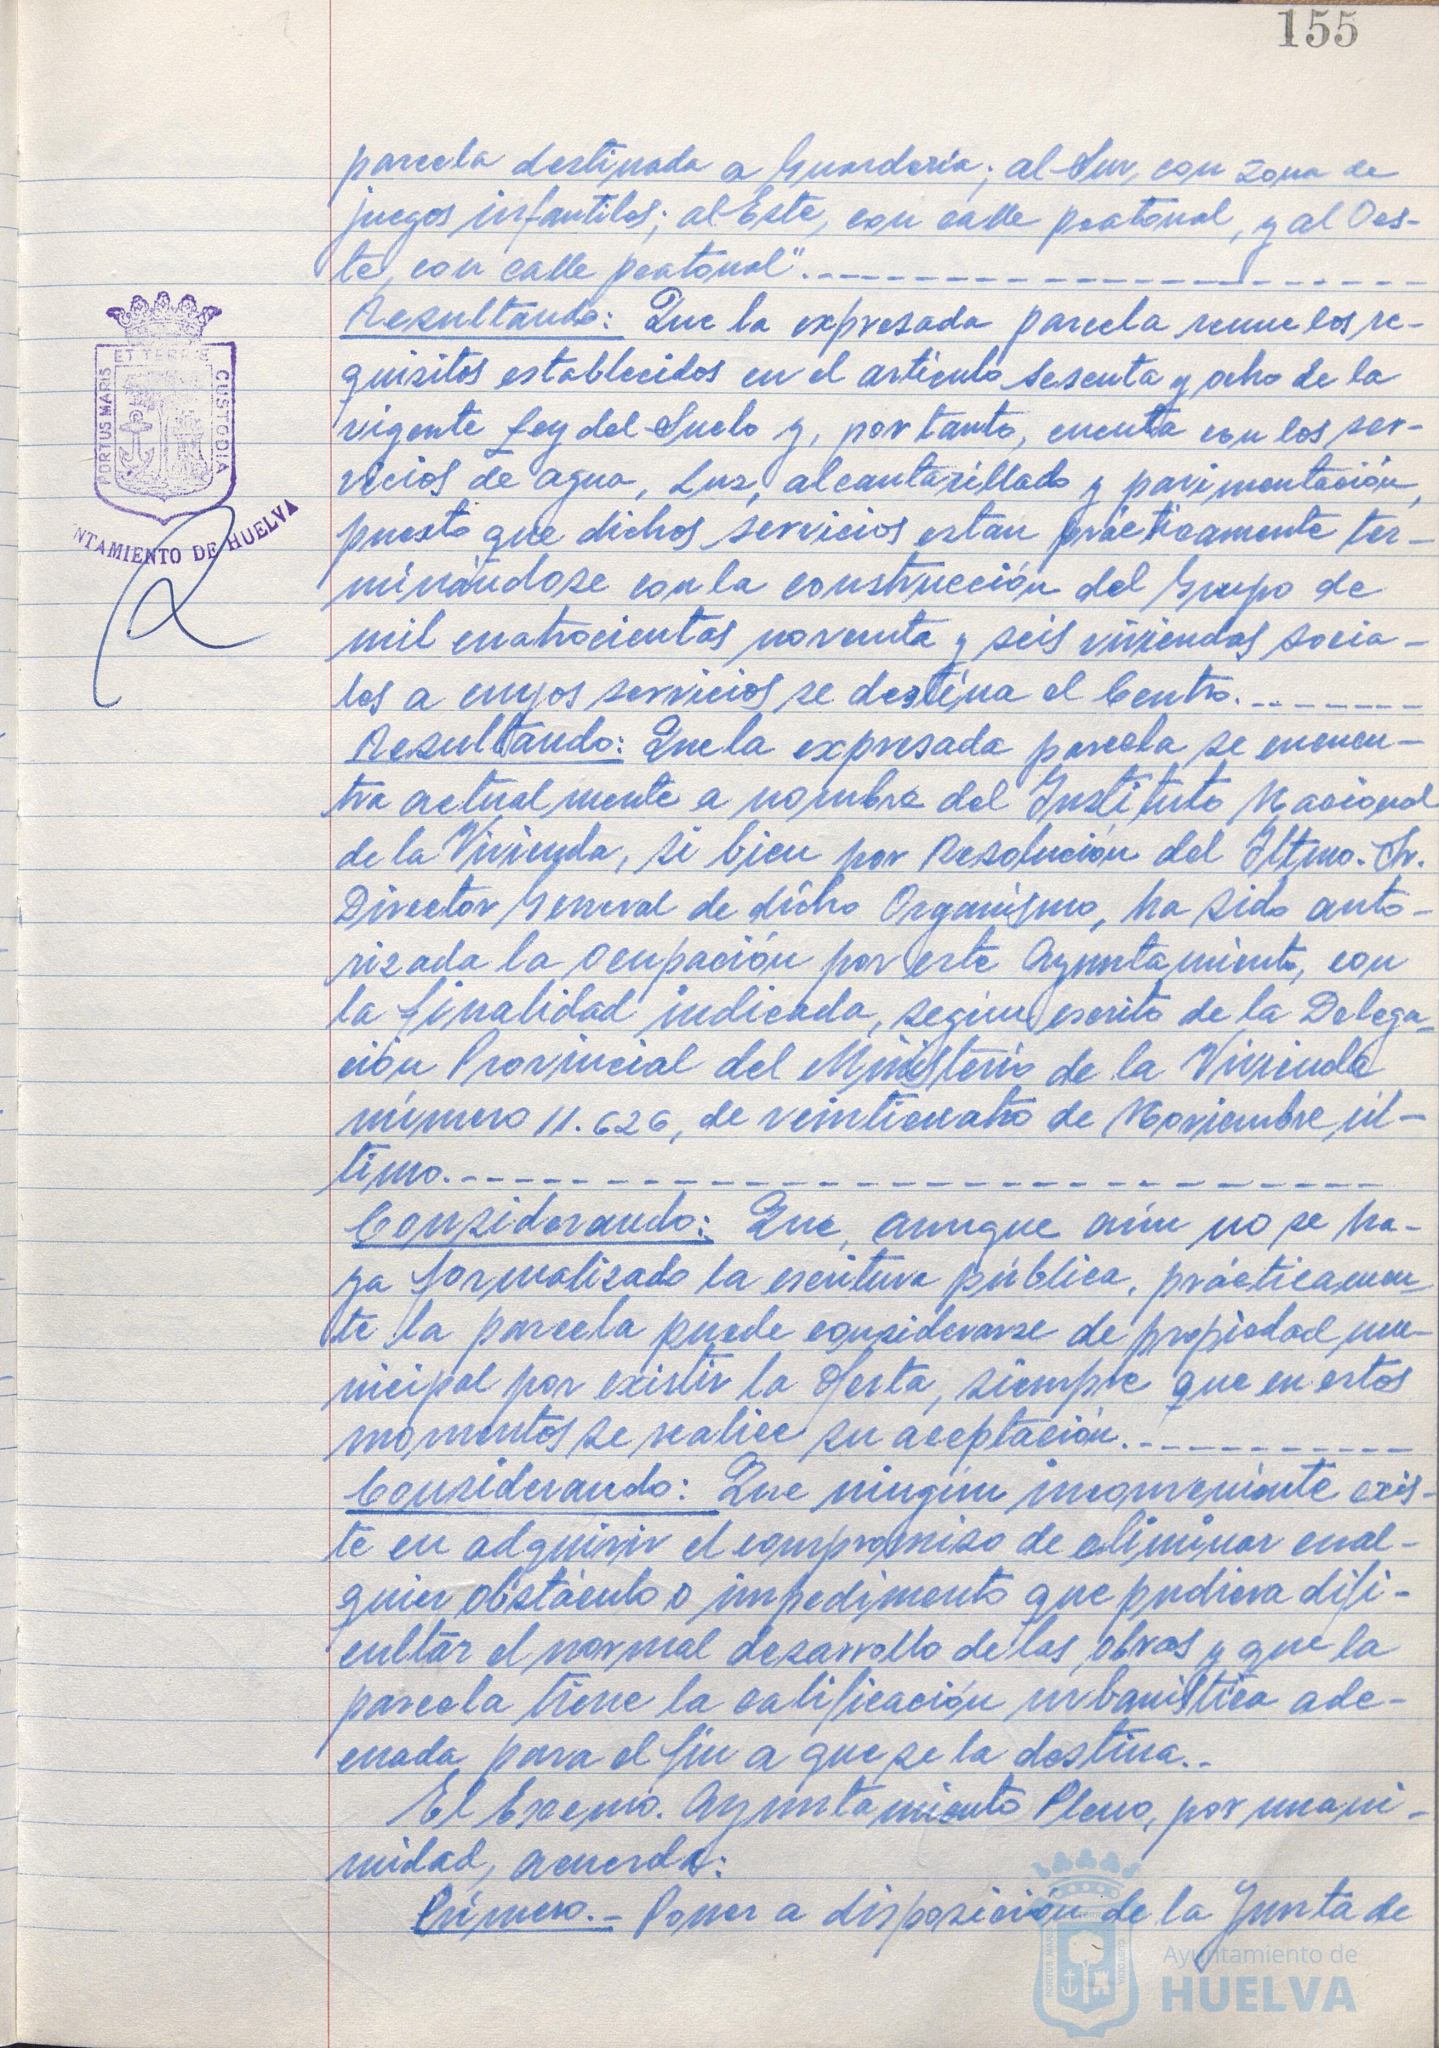 155
parcela destinada a Guardería; al Sur, con zona de
juegos infantiles; al Este, con calle peatonal, y al Oes-
te, con calle peatonal".
Resultando: Que la expresada parcela reune los re-
quisitos establecidos en el artículo sesenta y ocho de la
vigente Ley del Suelo y, por tanto, cuenta con los ser-
vicios de agua, Luz, alcantarillado y pavimentación,
puesto que dichos servicios estan prácticamente ter-
minándose con la construcción del Grupo de
mil cuatrocientas noventa y seis viviendas socia-
les a cuyos servicios se destina el Centro.
Resultando: Que la expresada parcela se encuen-
tra actualmente a nombre del Instituto Nacional
de la Vivienda, si bien por Resolución del Iltmo. Sr.
Director General de dicho Organismo, ha sido auto-
rizada la ocupación por este Ayuntamiento, con
la finalidad indicada, según escrito de la Delega-
ción Provincial del Ministerio de la Vivienda
número 11.626, de veinticuatro de Noviembre, úl-
timo.
Considerando: Que, aunque aún no se ha-
ya formalizado la escritura pública, prácticamen-
te la parcela puede considerarse de propiedad mu-
nicipal por existir la oferta, siempre que en estos
momentos se realice su aceptación.
Considerando: Que ningún inconveniente exis-
te en adquirir el compromiso de eliminar cual-
quier obstáculo o impedimento que pudiera difi-
cultar el normal desarrollo de las obras y que la
parcela tiene la calificación urbanística ade-
cuada para el fin a que se la destina.-
El Excmo. Ayuntamiento Pleno, por unani-
midad, acuerda:
Primero.- Poner a disposición de la Junta de
PORTUS MARIS
ET TERRE
CUSTODIA
NTAMIENTO DE HUELVA
Ayuntamiento de
HUELVA